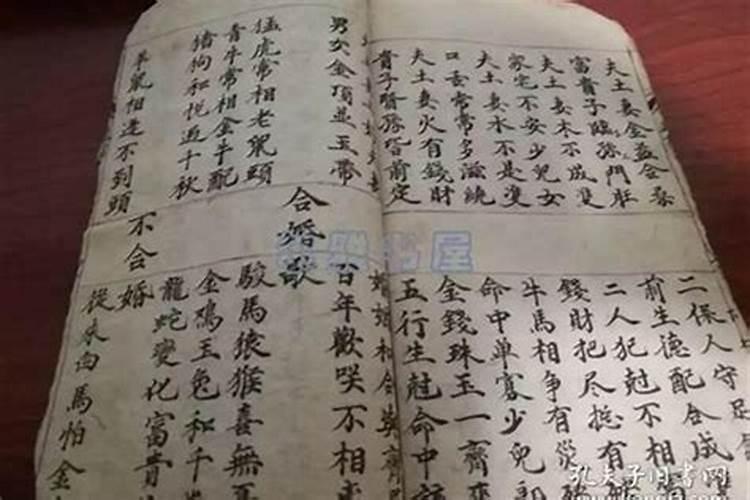 夫土妻金益合
富貴子臨孫門庄
夫土妻木不成雙
家宅不安少兒女
夫土妻水不是雙
口舌常常多滋繞
夫土妻火有錢財
貴子賢孫皆前定
二保人守足
前生德配合成
二人犯尅不相
錢財把尽挺有
牛馬相争有災
命中单寡少兒郎
金錢珠玉一齊來
五行生尅命中
婚姻和合
男女金項並玉帶
猛虎常相老鼠頭
青牛常相金牛配
猪狗和悦過千秋
羊鼠相逢不到頭
合婚歌
百年歡咲不相
駿馬猿猴喜無
金鳮玉兔和千
龍蛇變化富貴
不合婚
從來白馬怕金
孔夫子旧書网